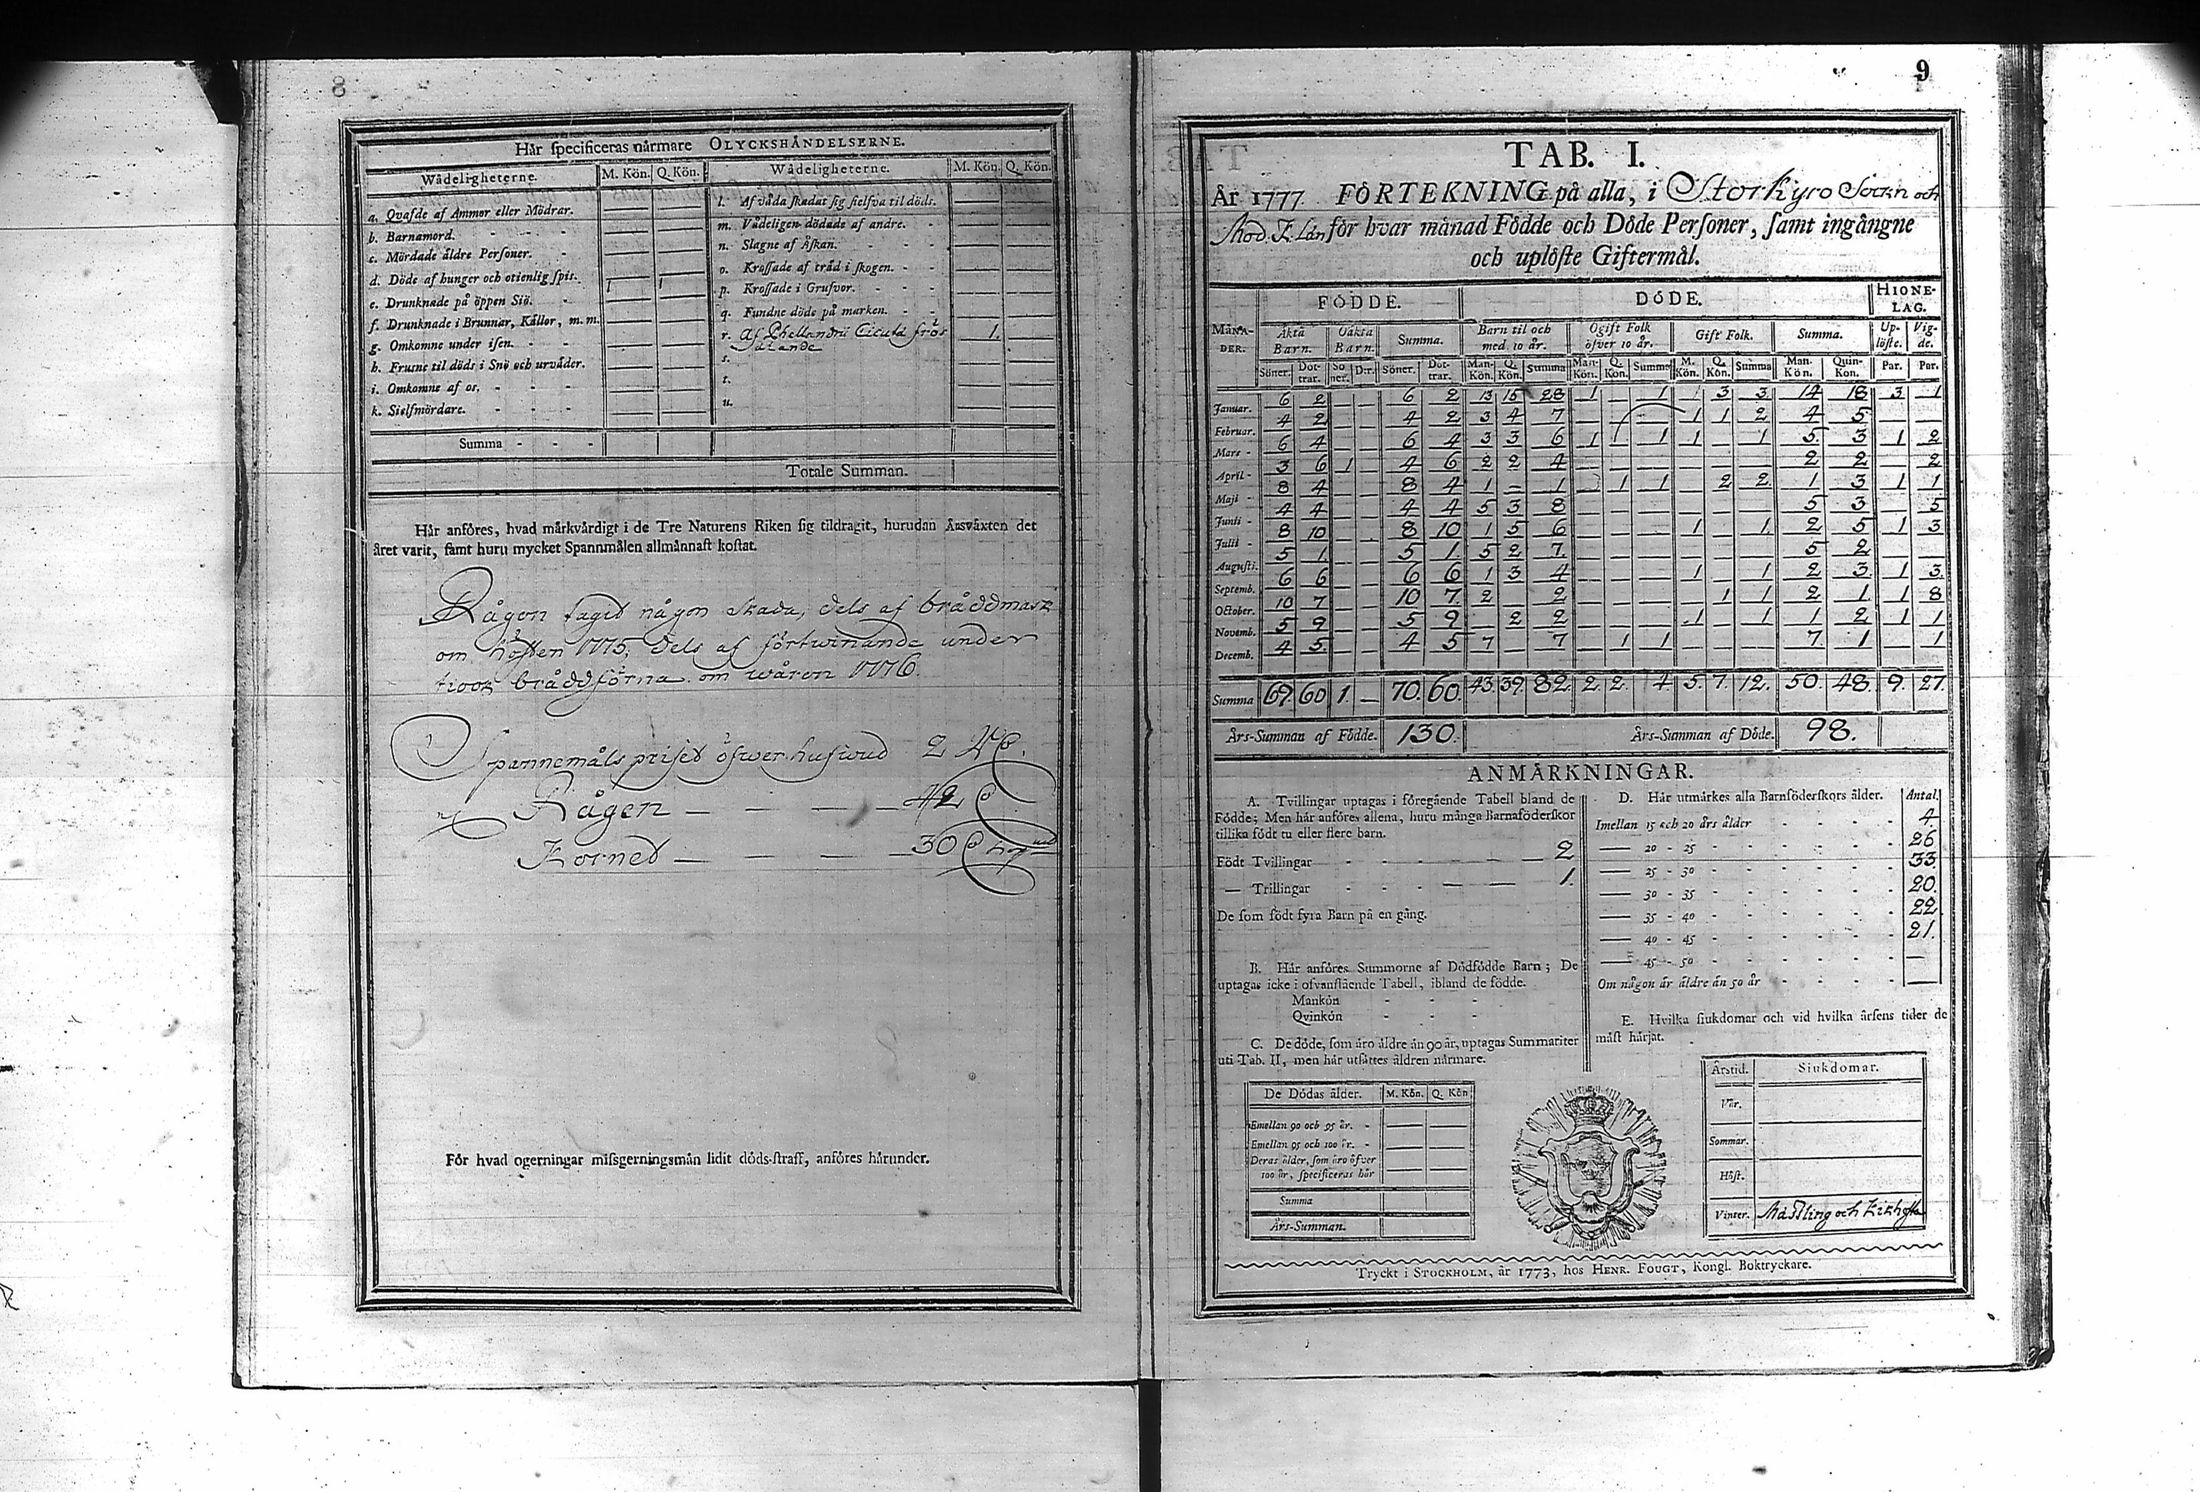 8
Hår specificeras nårmare OLYCKSHÅNDELSERNE.
Wådeligheterne. M. Kön. Q. Kön. Wådeligheterne. M. Kön. Q. Kön.
a. Qvafde af Ammor eller Mödrar.
b. Barnamord.
c. Mördade äldre Personer.
d. Döde af hunger och otienlig spis. 1 1
e. Drunknade på öppen Siö.
f. Drunknade i Brunnar, Kållor, m. m.
g. Omkomne under isen.
h. Frusne til döds i Snö och urvåder.
i. Omkomne af os.
k. Sielfmördare.
l. Af våda skadat sig sielfva til döds.
m. Vådeligen dödade af andre.
n. Slagne af Åskan.
o. Krossade af tråd i skogen.
p. Krossade i Grufvor.
q. Fundne döde på marken.
r. Af Phellandrii Cicuta frös 1.
s.
t.
u.
Summa
Totale Summan.
Hår anföres, hvad mårkvårdigt i de Tre Naturens Riken sig tildragit, hurudan Årsvåxten det
året varit, samt huru mycket Spannmålen allmånnast kostat.
Rågen tagit någon skada, dels af bråddmask
om hösten 1775, dels af förtwinande under
om wåren 1776.
Spannemåls priset öfwer hufwud 2
Rågen — — — 42
Kornet — — — 30
För hvad ogerningar missgerningsmån lidit döds-straff, anföres hårunder.
9
TAB. I.
År 1777. FÖRTEKNING på alla, i Storkyro Sockn och
Mod. K. Lån för hvar månad Födde och Döde Personer, samt ingångne
och uplöste Giftermål.
FÖDDE. DÖDE. HIONE-
LAG.
MÅNA-
DER. Åkta
Barn. Oåkta
Barn. Summa. Barn til och
med 10 år. Ogift Folk
öfver 10 år. Gift Folk. Summa. Up-
löste. Vig-
de.
Söner. Döt-
trar. Sö
ner. D:r. Söner. Döt-
trar. Man-
Kön. Q.
Kön. Summa Man-
Kön. Q.
Kön. Summa M.
Kön. Q.
Kön. Summa Man-
Kön. Quin-
Kön. Par. Par.
Januar. 6 2 — — 6 2 13 15 28 1 — 1 — 3 3 14 18 3 1
Februar. 4 2 — — 4 2 3 4 7 — — — 1 1 2 4 5 — —
Mars - 6 4 — — 6 4 3 3 6 1 — 1 1 — 1 5 3 1 2
April - 3 6 1 — 4 6 2 2 4 — — — — — — 2 2 — 2
Maji - 8 4 — — 8 4 1 — 1 — 1 1 — 2 2 1 3 1 1
Junii - 4 4 — — 4 4 5 3 8 — — — — — — 5 3 — 5
Julii - 8 10 — — 8 10 1 5 6 — — — 1 — 1 2 5 1 3
Augusti. 5 1 — — 5 1 5 2 7 — — — — — — 5 2 — —
Septemb. 6 6 — — 6 6 1 3 4 — — — 1 — 1 2 3 1 3
October. 10 7 — — 10 7 2 — 2 — — — — 1 1 2 1 1 8
Novemb. 5 9 — — 5 9 — 2 2 — — — 1 — 1 1 2 1 1
Decemb. 4 5 — — 4 5 7 — 7 — 1 1 — — — 7 1 — 1
Summa 69. 60 1. — 70. 60. 43. 39. 82. 2. 2. 4. 5. 7. 12. 50. 48. 9. 27.
Års-Summan af Födde. 130. Års-Summan af Döde. 98.
ANMÅRKNINGAR.
A. Tvillingar uptagas i föregående Tabell bland de
Födde; Men hår anföres allena, huru många Barnaföderskor
tillika födt tu eller flere barn.
Födt Tvillingar 2
— Trillingar 1.
De som födt fyra Barn på en gång.
B. Hår anföres Summorne af Dödfödde Barn; De
uptagas icke i ofvanstående Tabell, ibland de födde.
Mankön
Qvinkön
C. De döde, som åro åldre ån 90 år, uptagas Summariter
uti Tab. II, men hår utsåttes åldren nårmare.
De Dödas ålder. M. Kön. Q. Kön
Emellan 90 och 95 år.
Emellan 95 och 100 år.
Deras ålder, som åro öfver
100 år, specificeras hår
Summa
Års-Summan.
D. Hår utmårkes alla Barnföderskors ålder. Antal.
Imellan 15 och 20 års ålder 4.
— 20 - 25 26
— 25 - 30 33
— 30 - 35 20.
— 35 - 40 22
— 40 - 45 21.
— 45 - 50 —
Om någon år åldre ån 50 år —
E. Hvilka siukdomar och vid hvilka årsens tider de
måst hårjat.
Årstid. Siukdomar.
Vår.
Sommar.
Höst.
Vinter. Mässling och Kikhosta
Tryckt i STOCKHOLM, år 1773, hos HENR. FOUGT, Kongl. Boktryckare.